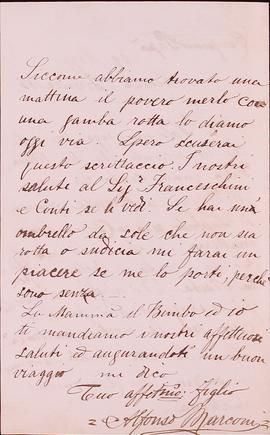 Siccome abbiamo trovato una
mattina il povero merlo con
una gamba rotta lo diamo
oggi via. Spero scuserai
questo scrittaccio. I nostri
saluti al Sigʳ Franceschini
e Conti se li vedi. Se hai un
ombrello da sole che non sia
rotto o sudicia mi farai un
piacere se me lo porti, perchè
sono senza
La Mamma, il Bimbo ed io
ti mandiamo i nostri affettuosi
saluti ed augurandoti un buon
viaggio mi dico
Tuo affetmo: figlio
Alfonso Marconi